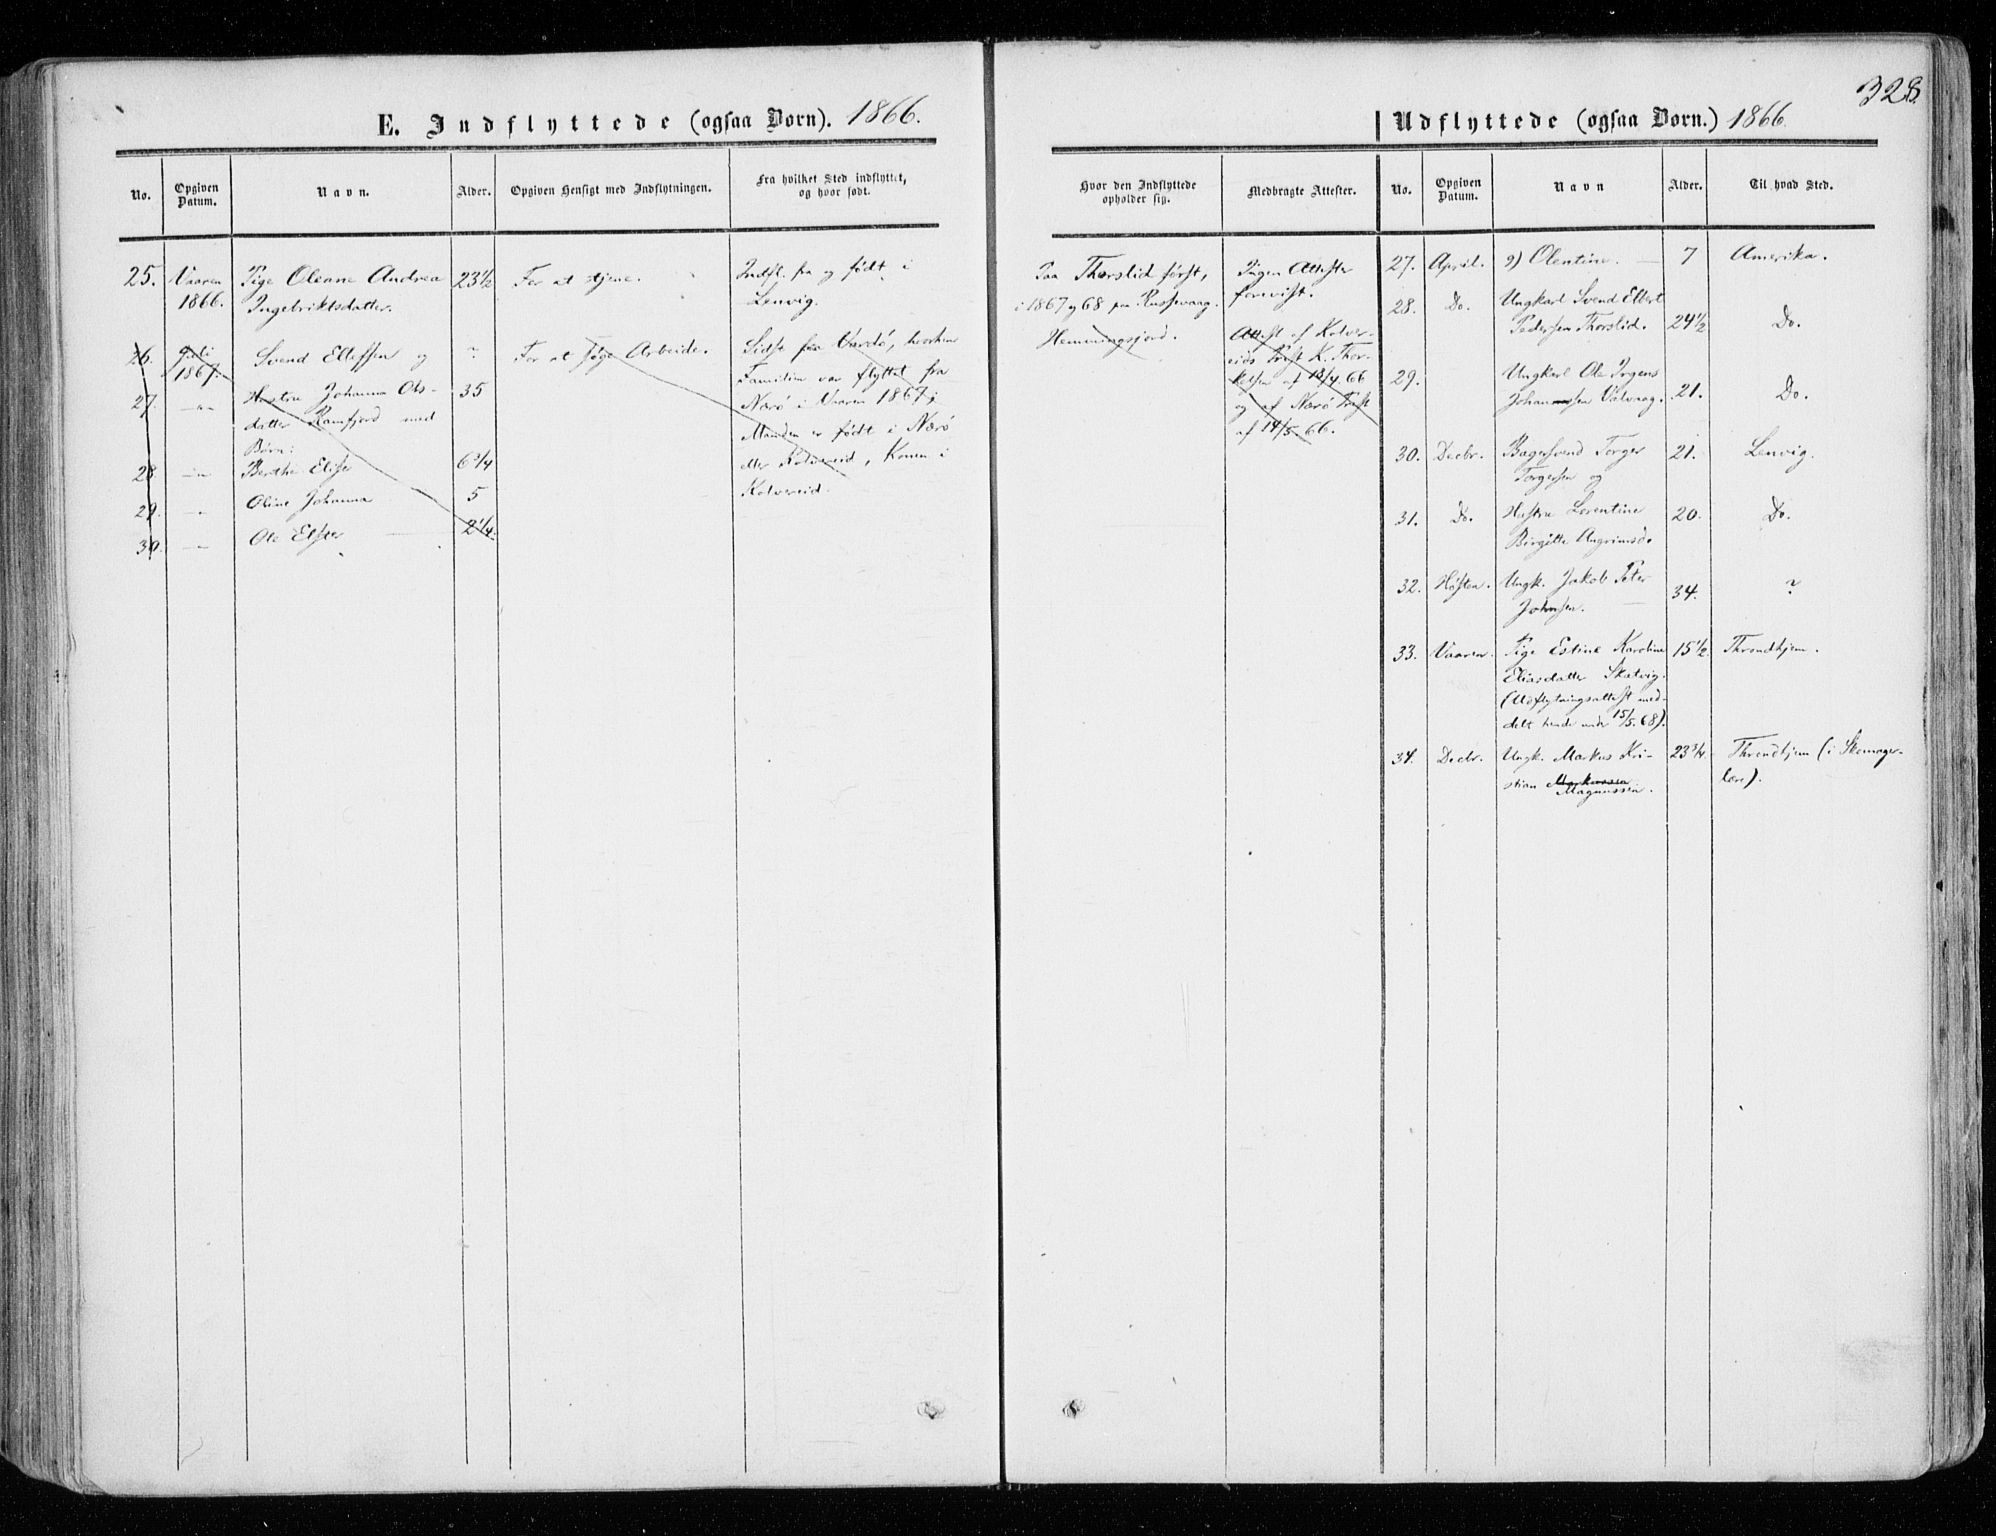 328
E. Indflyttede (ogsaa Dorn). 1866.
No.
Opgiven Datum.
Navn.
Alder.
Opgiven Hensigt med Indflytningen.
Fra hvilket Sted indflyttet, og hvor født.
25. Vaaren Pige Olenne Andrea 23½ For at tjene. Indfl. fra og født i
1866. Ingebriktsdatter. Lenvig.
26. Juli Svend Eltessen og ? For at søge Arbeide. Sidst fra Vardö, hvorhen
1867. Familien var flyttet fra
27. -"- Hustru Johanna Ols- 35 Nærö i Vaaren 1867;
datter Ramfjord med Manden er født i Nærö
Børn:
28. -"- Berthe Elise 6¾ eller Kolvereid, Konen i
29. " Oline Johanna 5 Kolvereid.
30. -"- Ole Elster 2¼.
Hvor den Indflyttede opholder sig.
Medbragte Attester.
Paa Thorslid først, Ingen Attester
i 1867 og 68 paa Russevaag. forevist.
Hemmingsfjord. Attest af Kolver-
eids Prest K. Thor-
kelsen af 18/4. 66
og af Nærö Prest
af 14/5. 66.
Udflyttede (ogsaa Dorn.) 1866.
No.
Opgiven Datum.
Navn
Alder.
Til hvad Sted.
27. April. 2) Olentine. — 7 Amerika.
28. Do. Ungkarl Svend Elbert
Pedersen Thorslid. 24½ Do.
29. Ungkarl Ole Irgens
Johannssen Vålvaag. 21. Do.
30. Decbr. Bagersvend Torger 21. Lenvig.
Torgersen og
31. Do. Hustru Lorentine 20. Do.
Birgitte Angrimsd.
32. Høsten. Ungk. Jakob Peter 34. ?
Johnsen. —
33. Vaaren. Pige Estine Karoline 15½ Throndhjem.
Eliasdatter Skatvig.
(Udflytningsattest med-
delt hende under 15/5. 68).
34. Decbr. Ungk. Markus Kri- 23¾ Throndhjem (i Skomager-
stian Markussen lære).
Magnussen.